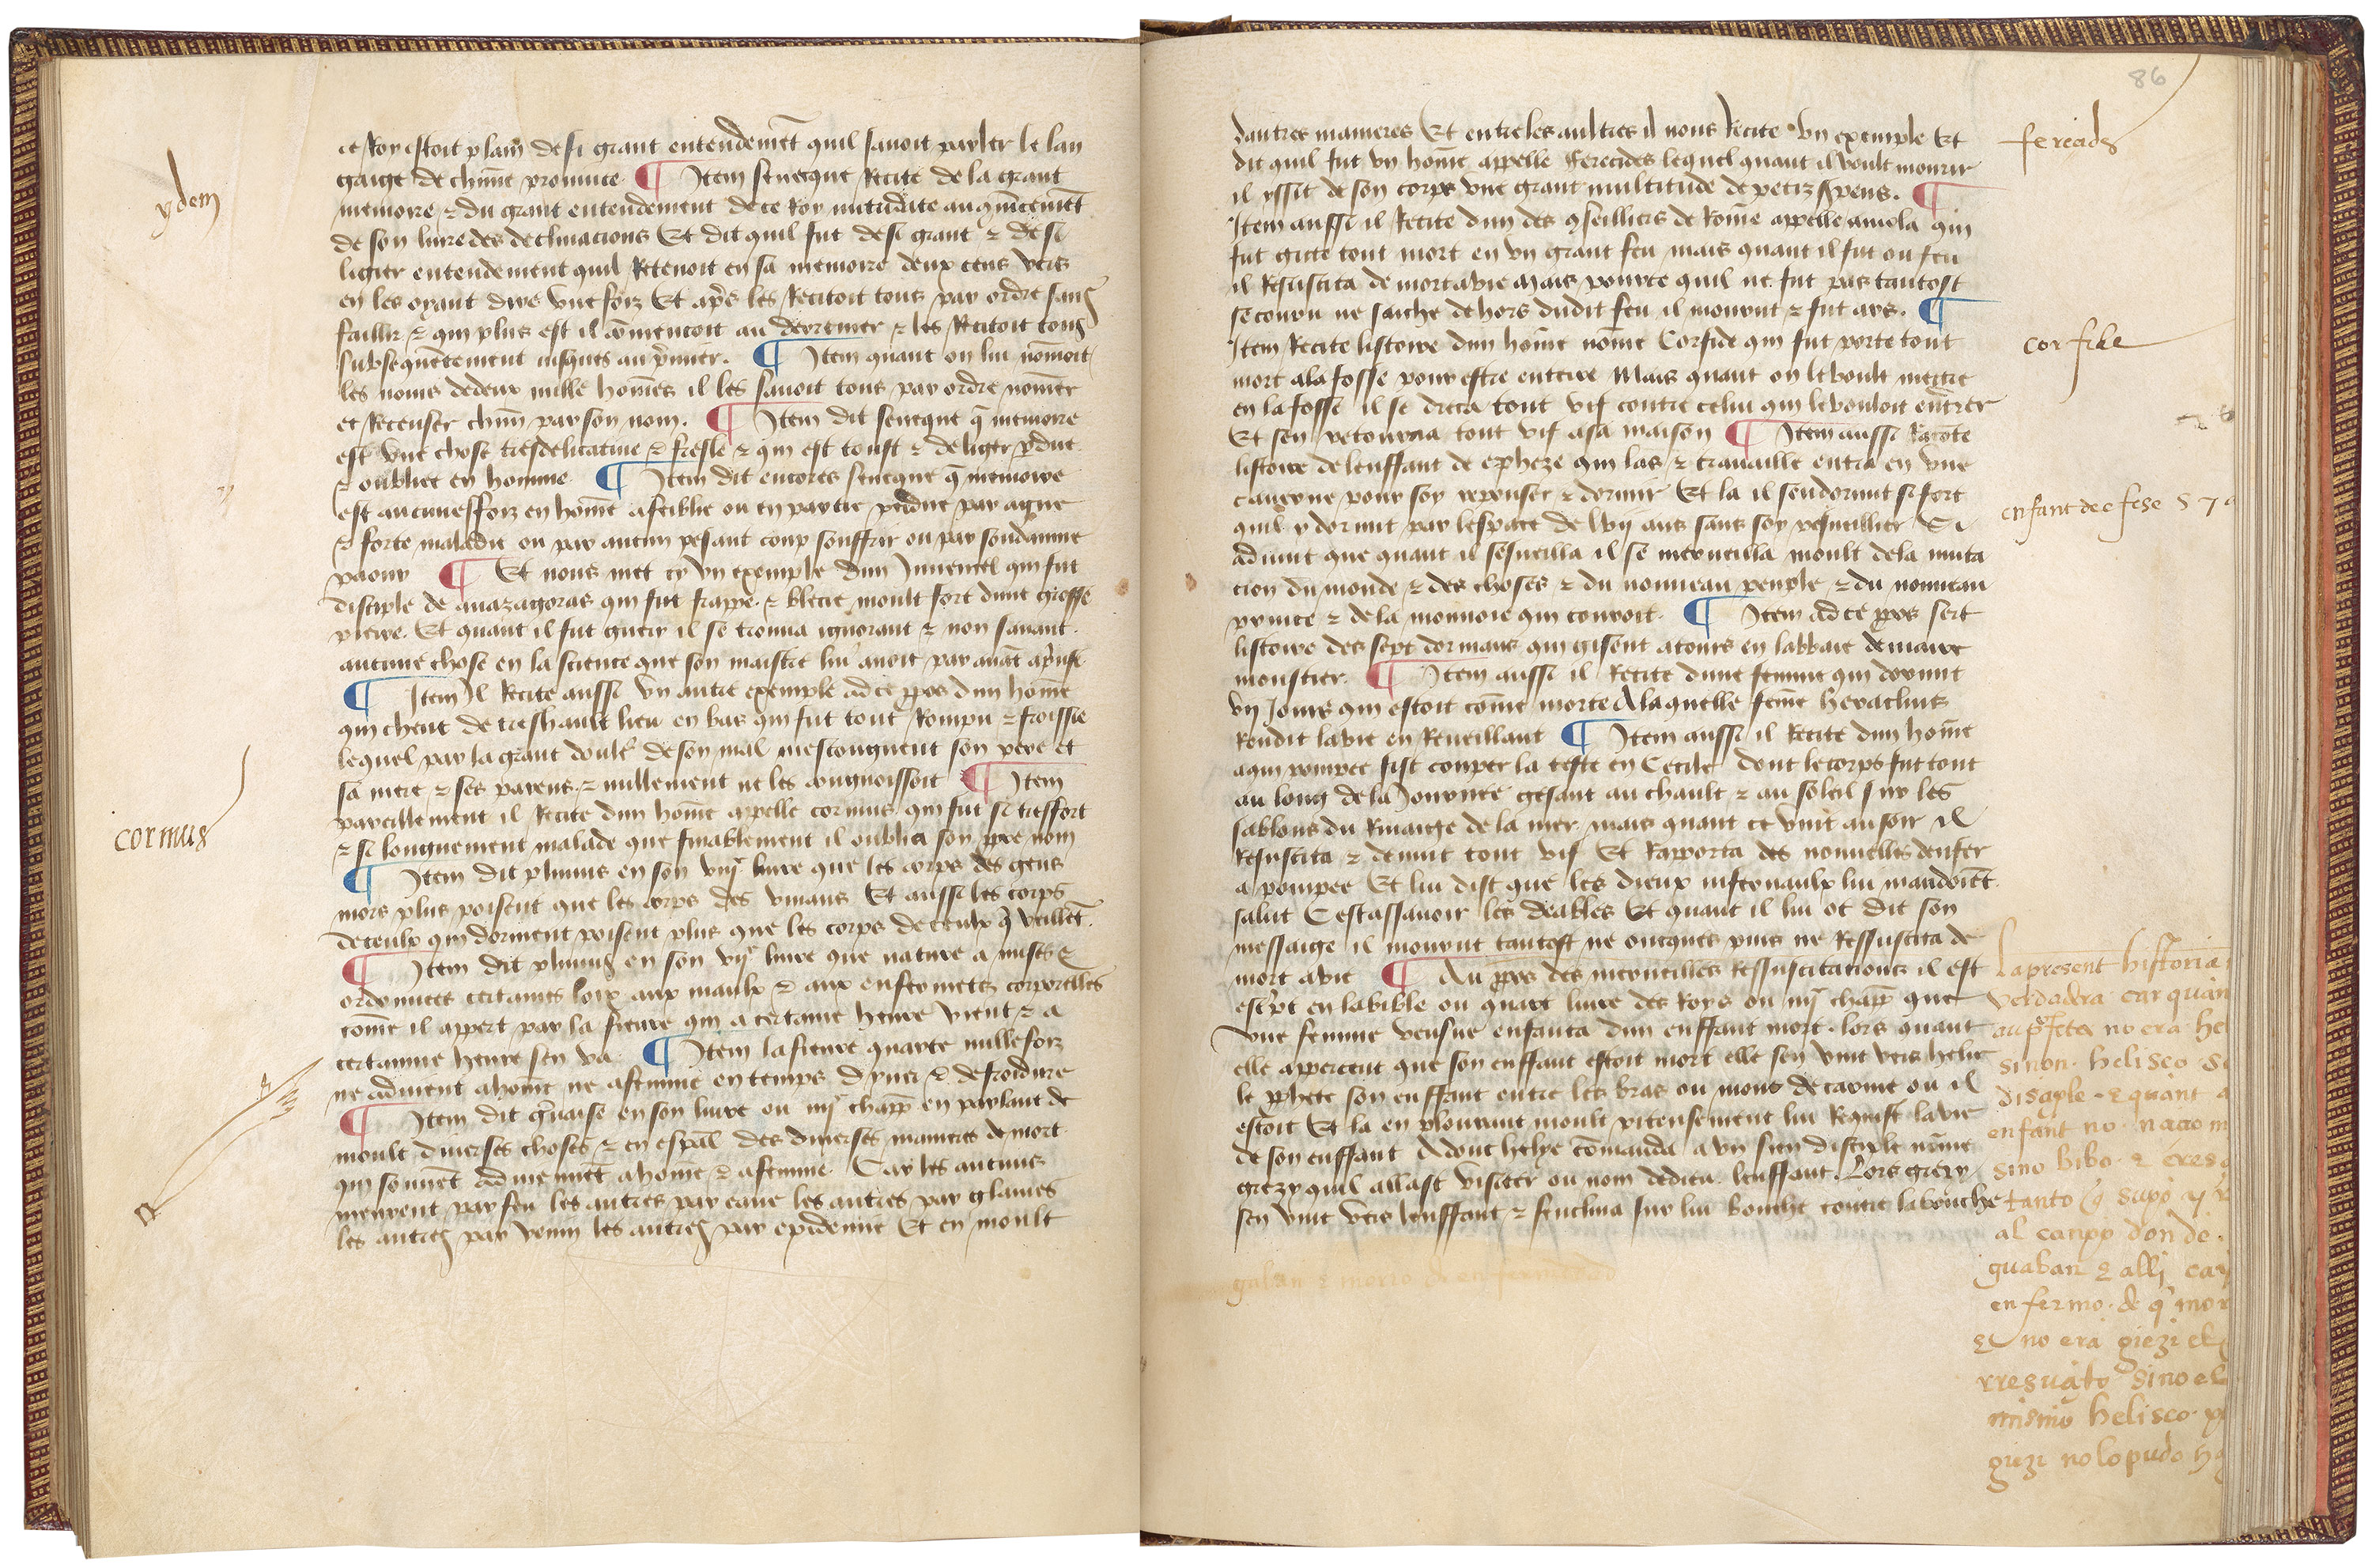 ydem
cormus
ce Roy estoit plain de si grant entendemēt quil savoit parler le lan
gaige de chūne prouince ¶ Item seneque Recite de la grant
memoire ⁊ du grant entendement de ce Roy mitridate au 9mēcemēt
de son liure des declinacions Et dit quil fut de si grant ⁊ de si
ligier entendement quil Retenoit en sa memoire deux cens vers
en les oyant dire vne foiz Et ap̄s les Recitoit tous par ordre sans
faillir ⁊ qui plus est il cōmencoit au derrenier ⁊ les Recitoit tous
subsequētement iusques au p̄mier. ¶ Item quant on lui nōmoit
les noms de deux mille hōmes il les sauoit tous par ordre nōmer
et Recenser chūn par son nom. ¶ Item dit seneque q̄ memoire
est vne chose tresdelicatiue ⁊ fresle ⁊ qui est toust ⁊ de liger p̄due
⁊ oubliee en homme ¶ Item dit encores seneque q̄ memoire
est aucuneffoiz en hōme afeiblie ou en partie perdue par ague
⁊ forte maladie ou par aucun pesant coup souffrir ou par soudainne
paour ¶ Et nous met cy vn exemple dun Juuencel qui fut
disciple de anazagoras qui fut frappe ⁊ blecie moult fort dune grosse
pierre. Et quant il fut guery il se trouua ignorant ⁊ non sauant
aucune chose en la science que son maistre lui auoit par auāt ap̄nse
¶ Item Il Recite aussi vn autre exemple ad ce p̄pos dun hōme
qui cheut de treshault lieu en bas qui fut tout Rompu ⁊ froissie
lequel par la grant doulr̄ de son mal mescongneut son pere et
sa mere ⁊ ses parens ⁊ nullement ne les congnoissoit ¶ Item
pareillement il Recite dun hōme appelle cormus qui fut si tresfort
⁊ si longuement malade que finablement il oublia son pp̄re nom
¶ Item dit plinius en son vijᵉ liure que les corps des gens
mors plus poisent que les corps des viuans Et aussi les corps
de ceulx qui dorment poisent plus que les corps de ceulx q̄ veillēt.
¶ Item dit plinius en son vijᵉ liure que nature a mises ⁊
ordonnees certaines loix aux maulx ⁊ aux enfermetez corporelles
cōme il appert par la fieure qui a certaine heure vient ⁊ a
certainne heure sen va ¶ Item la fieure quarte nulle foiz
ne aduient a hōme ne a femme en temps dyuer ⁊ de froidure
¶ Item dit g̅uaise en son liure ou iijᵉ chapp̄ en parlant de
moult diuerses choses ⁊ en esp̄al des diuerses manieres de mort
qui souuēt aduiennēt a home ⁊ a femme. Car les aucuns
meurent par feu les autres par eaue les autres par glaiues
les autres par venin les autres par epidemie Et en moult
86
dautres manieres Et entre les aultres il nous Recite vn exemple Et
dit quil fut vn hōme appelle Ferecides lequel quant il voult mourir
il yssit de son corps vne grant multitude de petiz s̄pens. ¶
Item aussi il Recite dun des 9seilliers de Rome appelle auiola qui
fut gitte tout mort en vn grant feu mais quant il fut ou feu
il Resuscita de mort a vie Mais pource quil ne fut pas tantost
secouru ne saiche dehors dudit feu il mourut ⁊ fut ars. ¶
Item Recite listoire dun hōme nōme Corfide qui fut porte tout
mort a la fosse pour estre enterre Mais quant on le voult mettre
en la fosse il se dreca tout vif contre celui qui le vouloit ent̄rer
Et sen retourna tout vif a sa maison ¶ Item aussi Racōte
listoire de lenffant de epheze qui las ⁊ trauaille entra en vne
cauerne pour soy repouser ⁊ dormir Et la il sendormit si fort
quil y dormit par lespace de lvij ans sans soy resueillier Si
aduint que quant il sesueilla il se merueilla moult de la muta
cion du monde ⁊ des choses ⁊ du nouueau peuple ⁊ du nouueau
prince ⁊ de la monnoie qui couroit. ¶ Item ad ce p̄pos sert
listoire des sept dormans qui gisent a tours en labbaie de maire
moustier. ¶ Item aussi il Recite dune femme qui dormit
vij Jours qui estoit cōme morte A laquelle feme heraclius
Rendit la vie en Reueillant ¶ Item aussi il Recite dun hōme
a qui pompee fist couper la teste en Cecile dont le corps fut tout
au long de la Journee gesant au chault ⁊ au soleil sur les
sablons du Riuaige de la mer mais quant ce vint au soir Il
Resuscita ⁊ deuint tout vif Et Rapporta des nouuelles denfer
a pompee Et lui dist que les dieux infernaulx lui mandoiēt
salut Cestassauoir les deables Et quant il lui ot dit son
messaige il mourut tantost ne oncques puis ne Ressuscita de
mort a vie ¶ Au p̄pos des merueilles Ressuscitacions il est
esc̄pt en la bible ou quart liure des Roys ou iiijᵉ chapp̄ que
vne femme veufue enfanta dun enffant mort. lors quant
elle apperceut que son enffant estoit mort elle sen vint vers helie
le p̄phete son enffant entre les bras ou mont de carme ou il
estoit Et la en plourant moult piteusement lui Requist la vie
de son enffant Adont helye cōmanda a vn sien disciple nōme
giezy quil allast visiter ou nom de dieu lenffant. Lors giezy
sen vint vers lenffant ⁊ senclina sur lui bouche contre la bouche
fereicds
corfide
enfant de efese 57
La present historia
verdadera car quan
au p̄feta no era he
sinon. heliseo. s
disciple. ⁊ quant a
enfant no. nacio m
sino bibo. ⁊ cres
tanto q̄ supo yr
al campo donde.
guaban ⁊ alli ca
enfermo. de q̄ mor
⁊ no era giezi el
rresuçito sino el
mismo heliseo. p
giezi no lo pudo h
gaban ⁊ morio de enfermedad